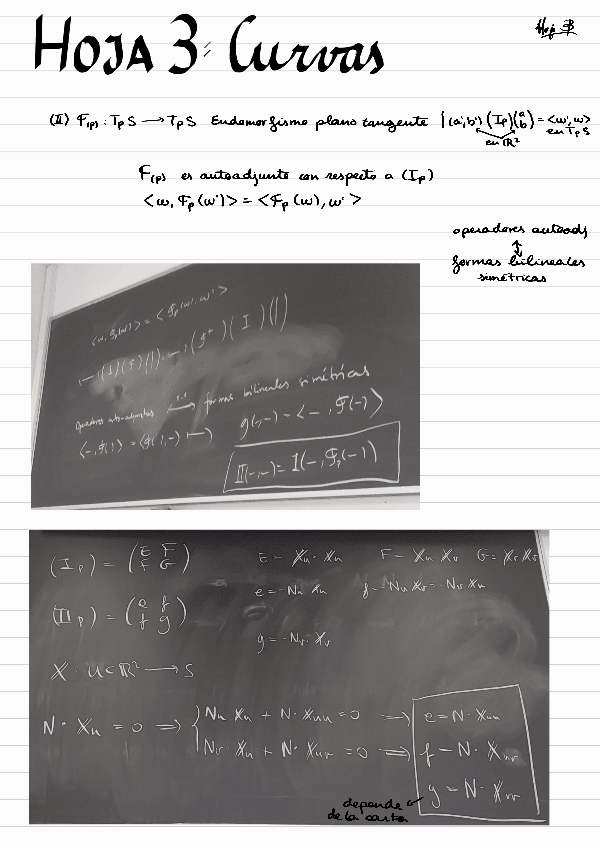 Hoja 3: Curvas
Hoja 3
(II) F(p) : TpS → TpS Endomorfismo plano tangente | (a',b') (Ip) (a b) = <w', w>
en R² en TpS
F(p) es autoadjunto con respecto a (Ip)
<w, Fp(w')> = <Fp(w), w'>
operadores autoadj
↕
formas bilineales
simétricas
<w, Fp(w')> = <Fp(w), w'>
autoadjuntos ↔ formas bilineales simétricas
g(-,-) = <-, F(-)>
II(-,-) = I(-, Fp(-))
(Ip) = (E F
F G)
E = Xu · Xu F = Xu Xv G = Xv Xv
e = -Nu Xu f = -Nu Xv = -Nv Xu
(IIp) = (e f
f g)
g = -Nv · Xv
X : U ⊂ R² → S
N · Xu = 0 ⇒ { Nu Xu + N · Xuu = 0 ⇒ e = N · Xuu
Nv · Xu + N · Xuv = 0 ⇒ f = N · Xuv
g = N · Xvv
depende
de la carta